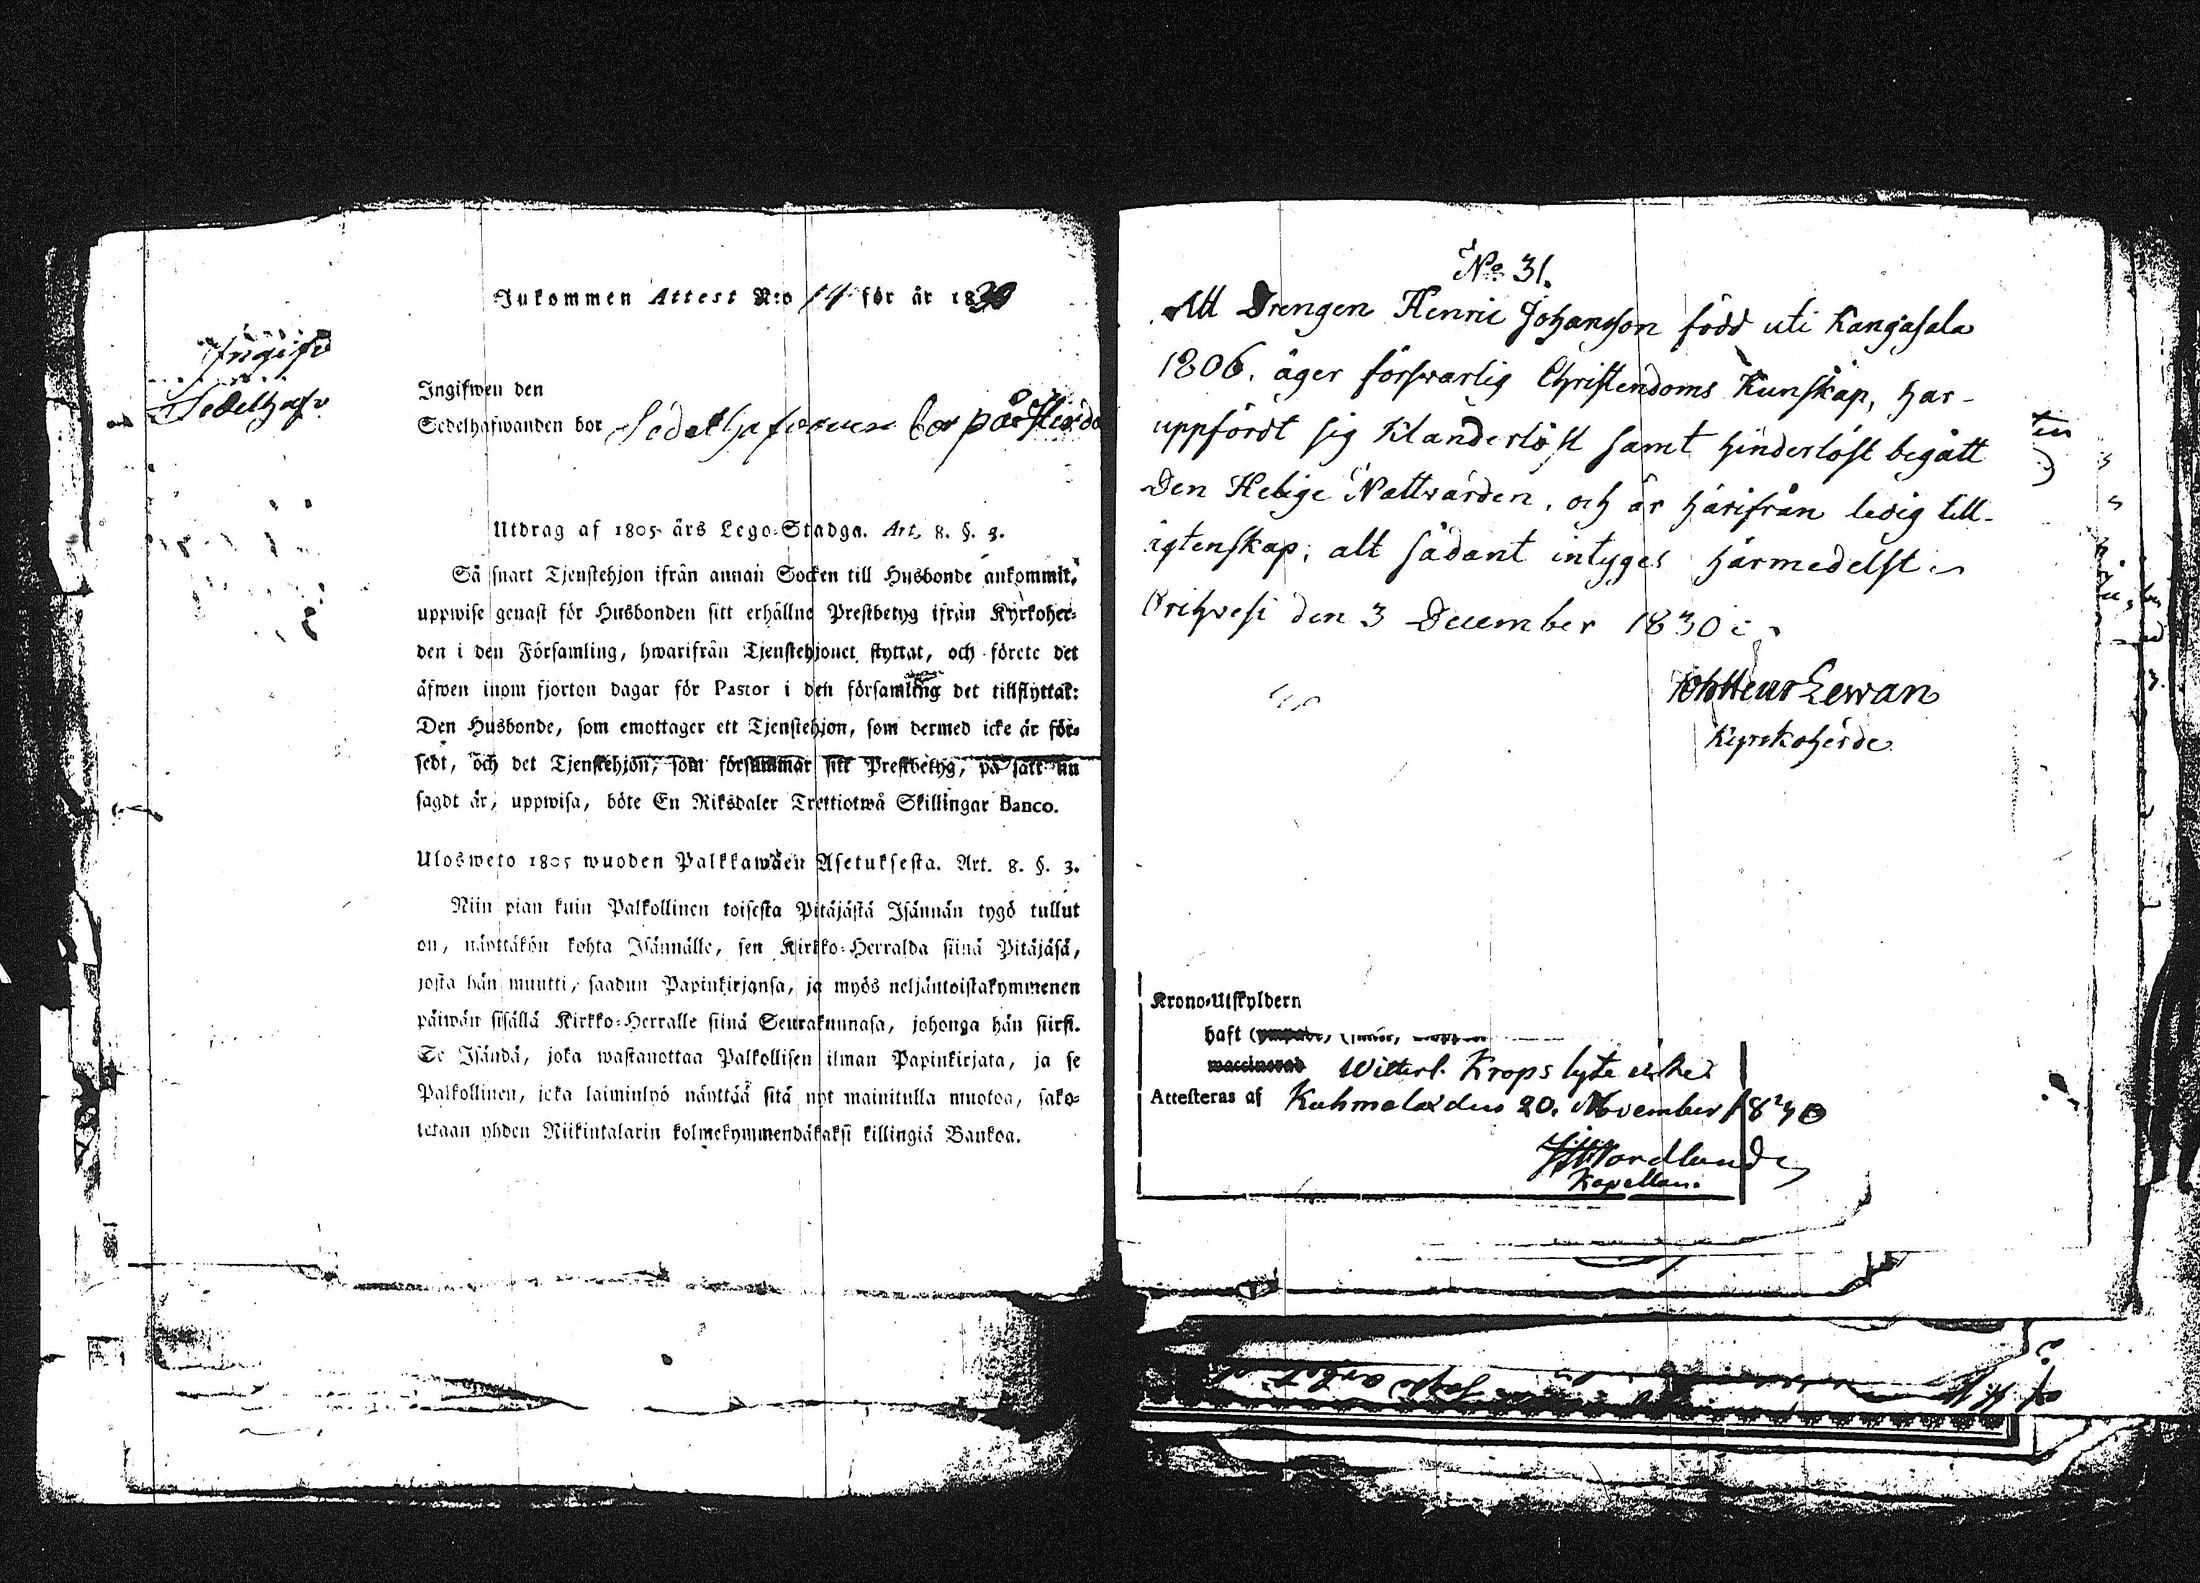 Inkommen Attest N:o 14 för år 1830
Ingifwen den
Sedelhafwanden bor
Utdrag af 1805 års Lego-Stadga. Art. 8. §. 3.
Så snart Tjenstehjon ifrån annan Socken till Husbonde ankommit,
uppwise genast för Husbonden sitt erhållne Prestbetyg ifrån Kyrkoher-
den i den Församling, hwarifrån Tjenstehjonet flyttat, och förete det
äfwen inom fjorton dagar för Pastor i den församling det tillflyttat:
Den Husbonde, som emottager ett Tjenstehjon, som dermed icke är för-
sedt, och det Tjenstehjon, som försummar sitt Prestbetyg, på sätt nu
sagdt är, uppwisa, böte En Riksdaler Trettiotwå Skillingar Banco.
Ulosweto 1805 wuoden Palkkawäen Asetuksesta. Art. 8. §. 3.
Niin pian kuin Palkollinen toisesta Pitäjästä Isännän tygö tullut
on, näyttäkön kohta Isännälle, sen Kirkko-Herralda siinä Pitäjäsä,
josta hän muutti, saadun Papinkirjansa, ja myös neljäntoistakymmenen
päiwän sisällä Kirkko-Herralle siinä Seurakunnasa, johonga hän siirsi.
Se Isändä, joka wastanottaa Palkollisen ilman Papinkirjata, ja se
Palkollinen, joka laiminlyö näyttää sitä nyt mainitulla muotoa, sako-
tetaan yhden Riikintalarin kolmekymmendäkaksi killingiä Bankoa.
No 31.
Att Drengen Henric Johansson född uti Kangasala
1806. äger förswarlig Christendoms Kunskap, har-
uppfördt sig Klanderlöst samt hinderlöst begått
Den Helige Nattvarden, och är härifrån ledig till-
ägtenskap; alt sådant intyges härmedelst
Orihvesi den 3 December 1830
Lewan
Kyrkoherde
Krono-Utskyldern
haft
waccinerad Witterl. Krops lyte icke
Attesteras af Kuhmalax den 20. November 1830
Nordlund
Kapellan.